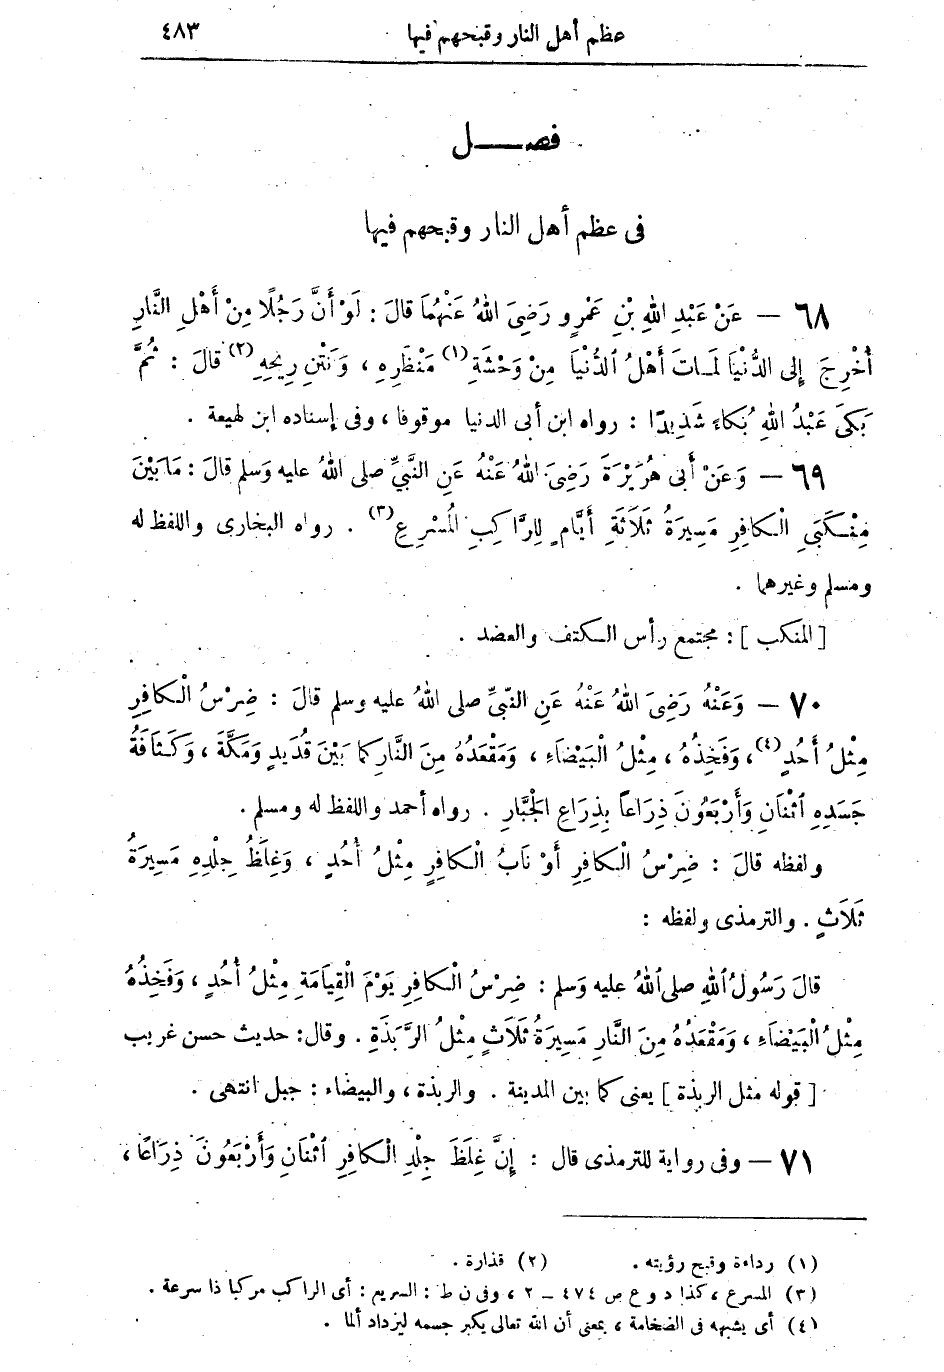 عظم أهل النار وقبحهم فيها ٤٨٣
فصـــل
فى عظم أهل النار وقبحهم فيها
٦٨ — عَنْ عَبْدِ اللهِ بْنِ عَمْرٍو رَضِىَ اللهُ عَنْهُمَا قَالَ : لَوْ أَنَّ رَجُلًا مِنْ أَهْلِ النَّارِ
أُخْرِجَ إِلى الدُّنْيَا لَمَـاتَ أَهْلُ الدُّنْيَا مِنْ وَحْشَةِ (١) مَنْظَرِهِ ، وَنَتْنِ رِيحِهِ (٢) قَالَ : ثُمَّ
بَكَى عَبْدُ اللهِ بُكَاءً شَدِيدًا : رواه ابن أبى الدنيا موقوفا ، وفى إسناده ابن لهيعة .
٦٩ — وَعَنْ أَبى هُرَيْرَةَ رَضِىَ اللهُ عَنْهُ عَنِ النَّبِيِّ صلى اللهُ عليه وَسلم قَالَ : مَا بَيْنَ
مَنْـكِبَىِ الْـكَافِرِ مَسِيرَةُ ثَلَاثَةِ أَيَّامٍ لِلرَّاكِبِ الْمُسْرِعِ (٣) . رواه البخارى واللفظ له
ومسلم وغيرهما .
[ المنكب ] : مجتمع رأس الـكتف والعضد .
٧٠ — وَعَنْهُ رَضِىَ اللهُ عَنْهُ عَنِ النَّبِيِّ صلى اللهُ عليه وسلم قَالَ : ضِرْسُ الْـكَافِرِ
مِثْلُ أُحُدٍ (٤) ، وَفَخِذُهُ ، مِثْلُ الْبَيْضَاءِ ، وَمَقْعَدُهُ مِنَ النَّارِ كَمَا بَيْنَ قُدَيْدٍ وَمَكَّةَ ، وَكَـثَافَةُ
جَسَدِهِ اثْنَانِ وَأَرْبَعُونَ ذِرَاعاً بِذِرَاعِ الْجَبَّارِ . رواه أحمد واللفظ له ومسلم .
ولفظه قَالَ : ضِرْسُ الْـكَافِرِ أَوْ نَابُ الْـكَافِرِ مِثْلُ أُحُدٍ ، وَغِلَظُ جِلْدِهِ مَسِيرَةُ
ثَلَاثٍ . والترمذى ولفظه :
قَالَ رَسُولُ اللهِ صلى اللهُ عليه وَسلم : ضِرْسُ الْـكَافِرِ يَوْمَ الْقِيَامَةِ مِثْلُ أُحُدٍ ، وَفَخِذُهُ
مِثْلُ الْبَيْضَاءِ ، وَمَقْعَدُهُ مِنَ النَّارِ مَسِيرَةُ ثَلَاثٍ مِثْلُ الرَّبَذَةِ . وقال : حديث حسن غريب
[ قوله مثل الربذة ] يعنى كما بين المدينة . والربذة ، والبيضاء : جبل انتهى .
٧١ — وفى رواية للترمذى قال : إِنَّ غِلَظَ جِلْدِ الْـكَافِرِ اثْنَانِ وَأَرْبَعُونَ ذِرَاعًا ،
(١) رداءة وقبح رؤيته . (٢) قذارة .
(٣) المسرع ، كذا د و ع ص ٤٧٤ – ٢ ، وفى ن ط : السريع : أى الراكب مركبا ذا سرعة .
(٤) أى يشبهه فى الضخامة ، بمعنى أن الله تعالى يكبر جسمه ليزداد ألما .